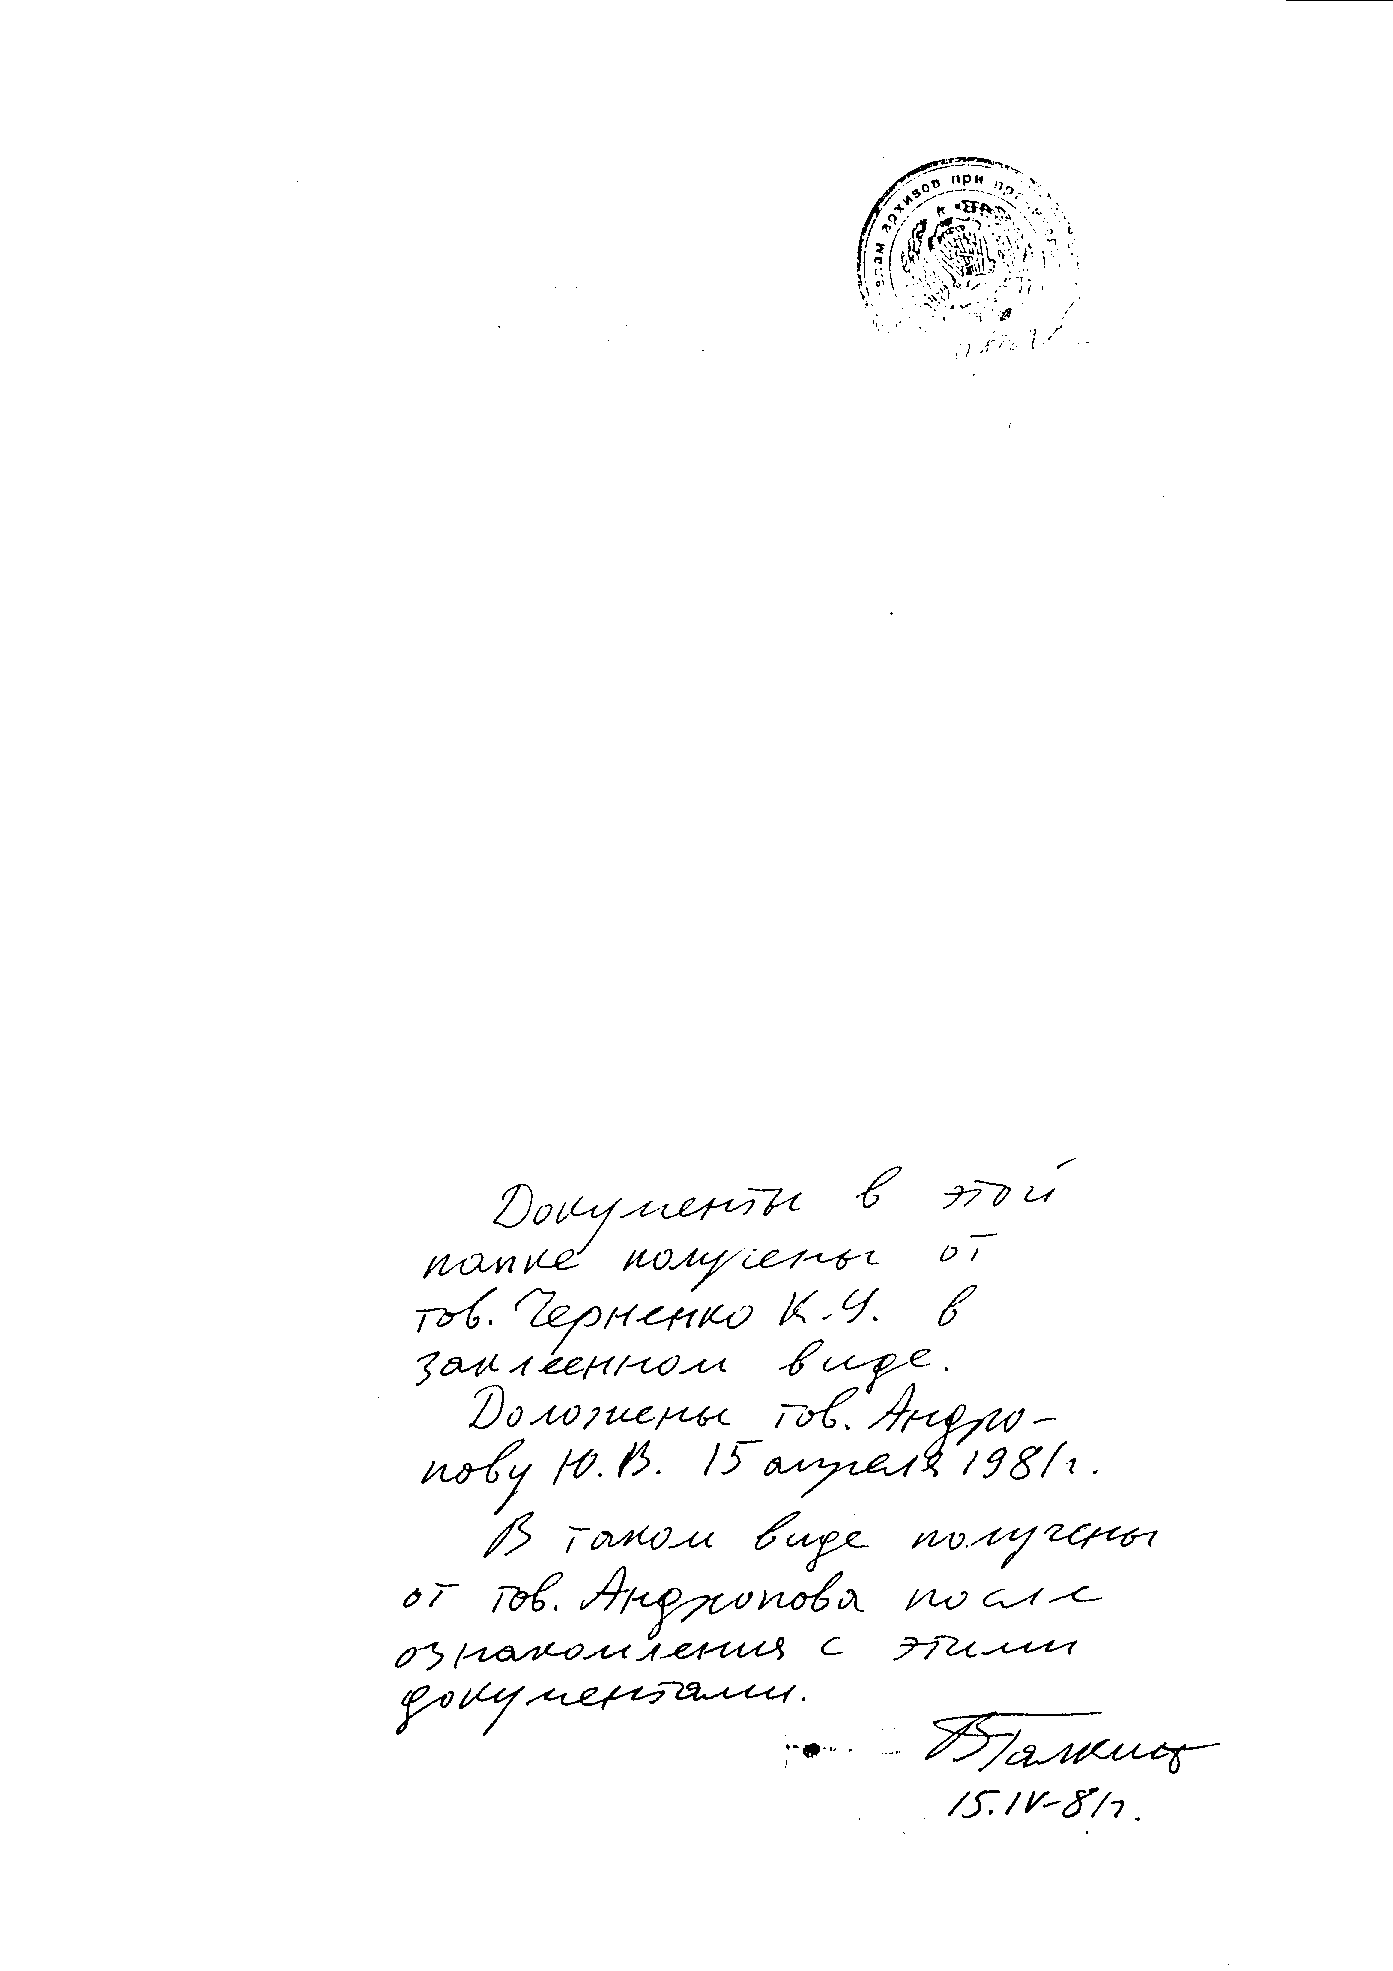 архивов при
Документы в этой
папке получены от
тов. Черненко К.У. в
заклеенном виде.
Доложены тов. Андро-
пову Ю.В. 15 апреля 1981 г.
В таком виде получены
от тов. Андропова после
ознакомления с этими
документами.
ВГалкин
15.IV-81г.